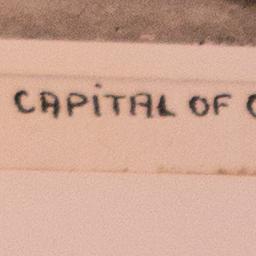 CAPiTAL OF